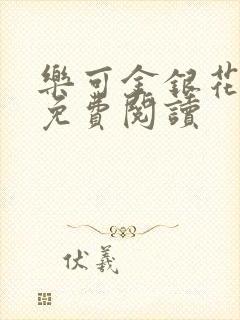 樂可金銀花
免費閱讀
伏羲